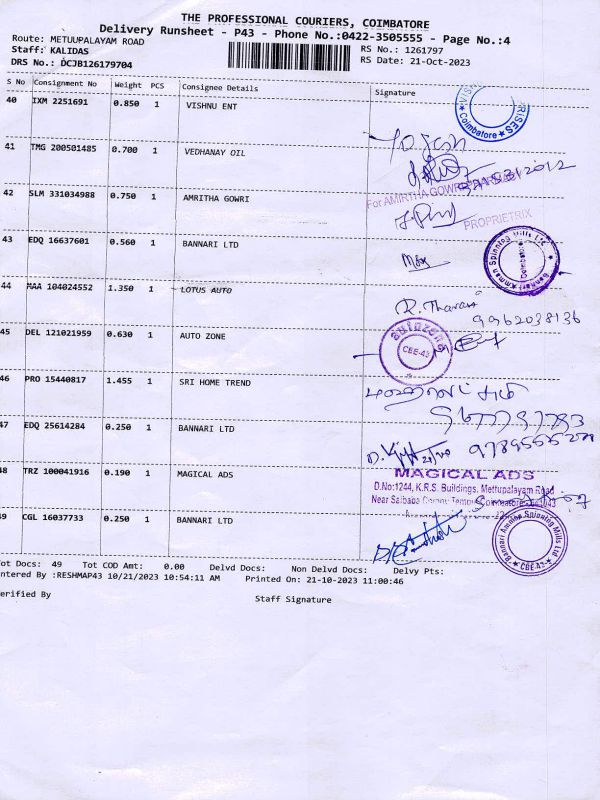 THE PROFESSIONAL COURIERS, COIMBATORE
Delivery Runsheet - P43 - Phone No.:0422-3505555 - Page No.:4
Route: METUUPALAYAM ROAD
RS No.: 1261797
Staff: KALIDAS
RS Date: 21-Oct-2023
DRS No.: DCJB126179704
S No Consignment No Weight PCS Consignee Details Signature
40 IXM 2251691 0.850 1 VISHNU ENT
Coimbatore
41 TMG 200501485 0.700 1 VEDHANAY OIL
42 SLM 331034988 0.750 1 AMRITHA GOWRI
For AMIRTHA GOWRI
PROPRIETRIX
43 EDQ 16637601 0.560 1 BANNARI LTD
Bannari Amman Spinning Mills Ltd
44 MAA 104024552 1.350 1 LOTUS AUTO
R. Tharan
9962038136
45 DEL 121021959 0.630 1 AUTO ZONE
autozone
CBE-43
46 PRO 15440817 1.455 1 SRI HOME TREND
47 EDQ 25614284 0.250 1 BANNARI LTD
48 TRZ 100041916 0.190 1 MAGICAL ADS
MAGICAL ADS
D.No:1244, K.R.S. Buildings, Mettupalayam Road
Near Saibaba
49 CGL 16037733 0.250 1 BANNARI LTD
Bannari Amman Spinning Mills Ltd
CBE-43
Tot Docs: 49 Tot COD Amt: 0.00 Delvd Docs: Non Delvd Docs: Delvy Pts:
Entered By :RESHMAP43 10/21/2023 10:54:11 AM Printed On: 21-10-2023 11:00:46
Verified By
Staff Signature